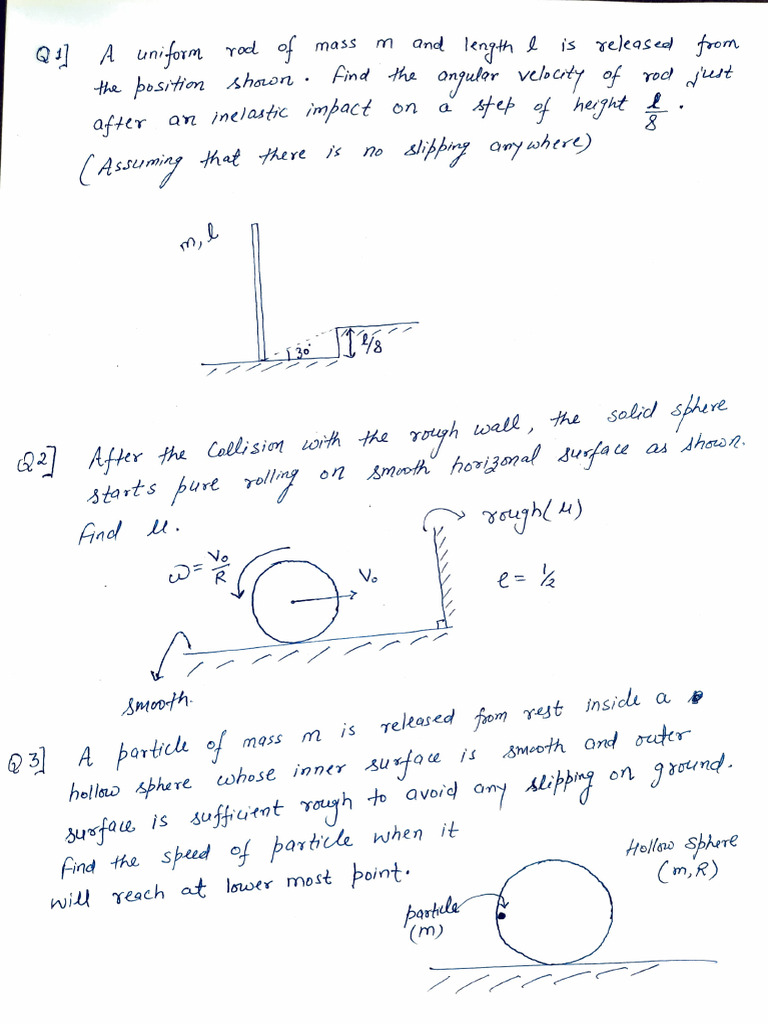 Q1] A uniform rod of mass m and length l is released from
the position shown. Find the angular velocity of rod just
after an inelastic impact on a step of height l/8.
(Assuming that there is no slipping anywhere)
m, l
30°
l/8
Q2] After the Collision with the rough wall, the solid sphere
starts pure rolling on smooth horizonal surface as shown.
find μ.
rough(μ)
ω = V₀/R
V₀
e = 1/2
smooth.
Q3] A particle of mass m is released from rest inside a
hollow sphere whose inner surface is smooth and outer
surface is sufficient rough to avoid any slipping on ground.
Find the speed of particle when it
will reach at lower most point.
Hollow sphere
(m, R)
particle
(m)